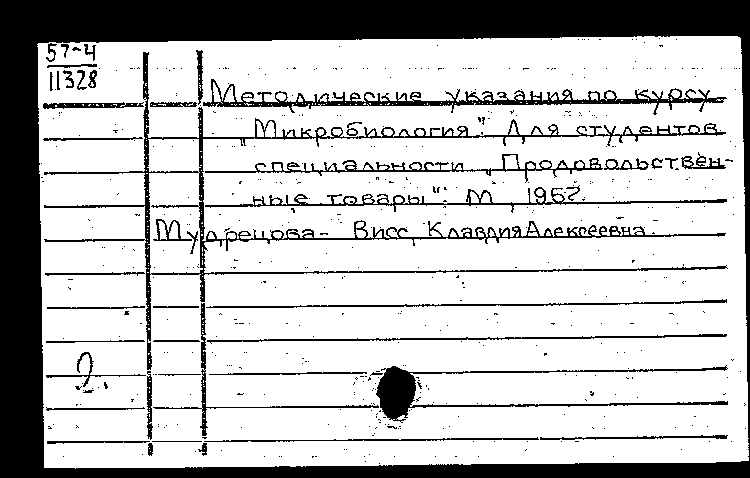 57-4
11328
Методические указания по курсу
„Микробиология". Для студентов
специальности „Продовольствен-
ные товары". М,
Мудрецова- Висс, Клавдия Алексеевна.
2.